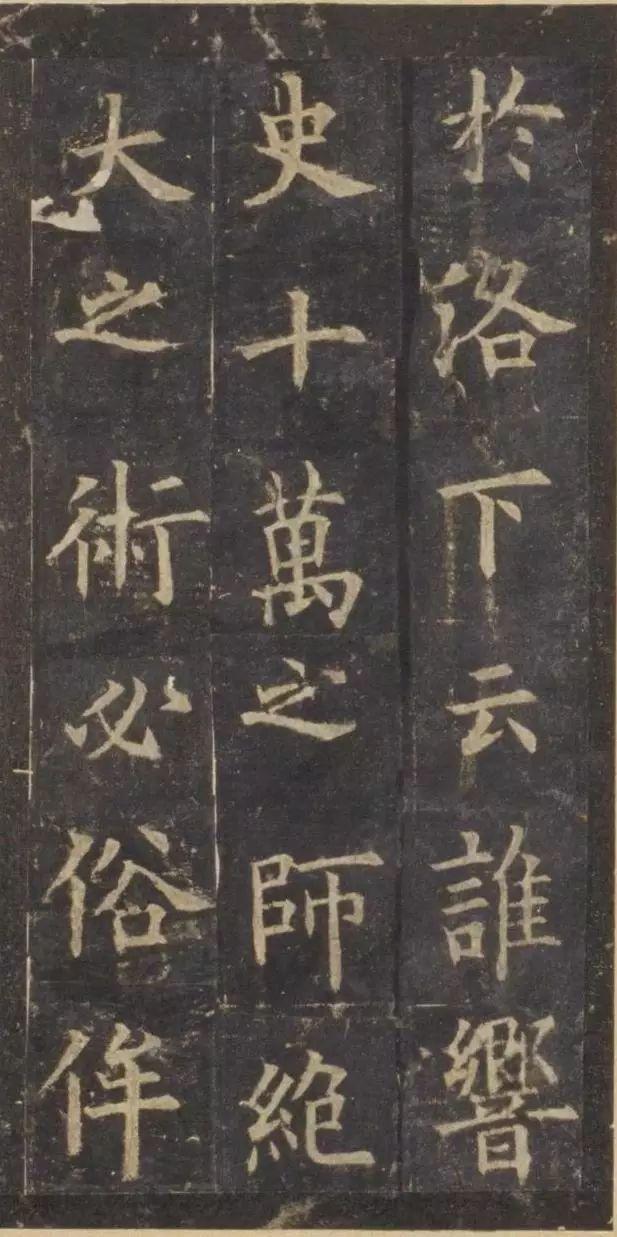 於洛下云誰響
史十萬之師絕
大之術必俗侔